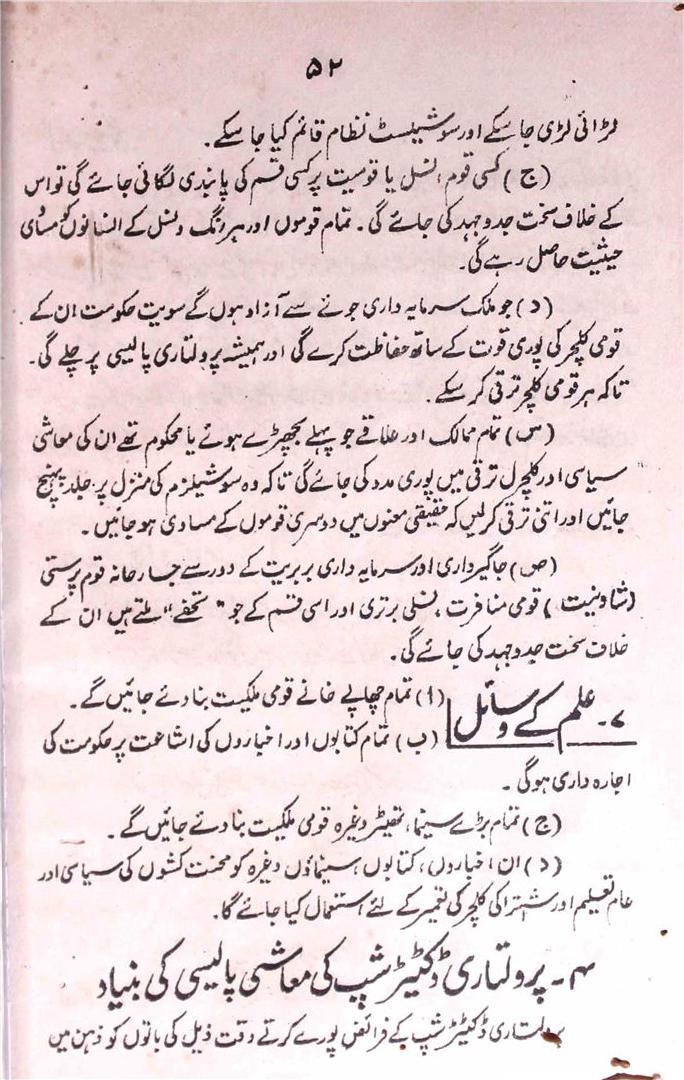 ۵۲
لڑائی لڑی جا سکے اور سوشیلسٹ نظام قائم کیا جا سکے۔
(ج) کسی قوم، نسل یا قومیت پر کسی قسم کی پابندی لگائی جائے گی تو اس
کے خلاف سخت جدوجہد کی جائے گی۔ تمام قوموں اور ہر رنگ و نسل کے انسانوں کو مساوی
حیثیت حاصل رہے گی۔
(د) جو ملک سرمایہ داری جوئے سے آزاد ہوں گے سویت حکومت ان کے
قومی کلچر کی پوری قوت کے ساتھ حفاظت کرے گی اور ہمیشہ پرولتاری پالیسی پر چلے گی۔
تاکہ ہر قومی کلچر ترقی کر سکے۔
(س) تمام ممالک اور علاقے جو پہلے بچھڑے ہوئے یا محکوم تھے ان کی معاشی
سیاسی اور کلچرل ترقی میں پوری مدد کی جائے گی تاکہ وہ سوشیلزم کی منزل پر جلد پہنچ
جائیں اور اتنی ترقی کر لیں کہ حقیقی معنوں میں دوسری قوموں کے مساوی ہو جائیں۔
(ص) جاگیرداری اور سرمایہ داری بربریت کے دور سے جارحانہ قوم پرستی
(شاونیت) قومی منافرت، نسلی برتری اور اسی قسم کے جو "تحفے" ملتے ہیں ان کے
خلاف سخت جدوجہد کی جائے گی۔
۷۔ علم کے وسائل
(ا) تمام چھاپے خانے قومی ملکیت بنا دئے جائیں گے۔
(ب) تمام کتابوں اور اخباروں کی اشاعت پر حکومت کی
اجارہ داری ہوگی۔
(ج) تمام بڑے سینما، تھیٹر وغیرہ قومی ملکیت بنا دئے جائیں گے۔
(د) ان اخباروں، کتابوں، سینماؤں وغیرہ کو محنت کشوں کی سیاسی اور
عام تعلیم اور اشتراکی کلچر کی تعمیر کے لئے استعمال کیا جائے گا۔
۴۔ پرولتاری ڈکٹیٹر شپ کی معاشی پالیسی کی بنیاد
پرولتاری ڈکٹیٹر شپ کے فرائض پورے کرتے وقت ذیل کی باتوں کو ذہن میں